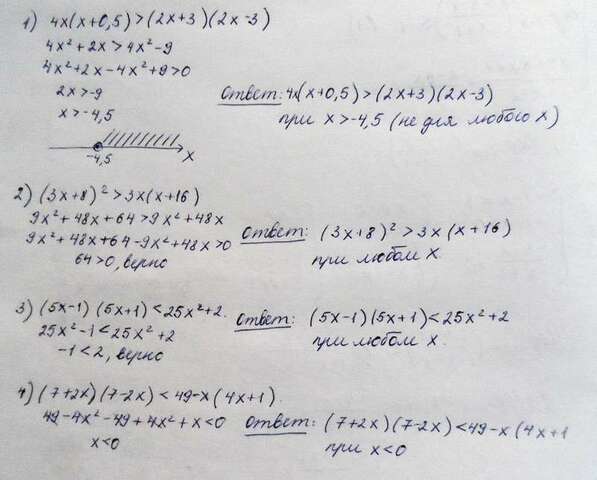 1) 4x(x+0,5)>(2x+3)(2x-3)
4x²+2x>4x²-9
4x²+2x-4x²+9>0
2x>-9
x>-4,5
-4,5 x
Ответ: 4x(x+0,5)>(2x+3)(2x-3)
при x>-4,5 (не для любого x)
2) (3x+8)²>3x(x+16)
9x²+48x+64>9x²+48x
9x²+48x+64-9x²+48x>0
64>0, верно
Ответ: (3x+8)²>3x(x+16)
при любом x
3) (5x-1)(5x+1)<25x²+2.
25x²-1<25x²+2
-1<2, верно
Ответ: (5x-1)(5x+1)<25x²+2
при любом x.
4) (7+2x)(7-2x)<49-x(4x+1).
49-4x²-49+4x²+x<0
x<0
Ответ: (7+2x)(7-2x)<49-x(4x+1
при x<0